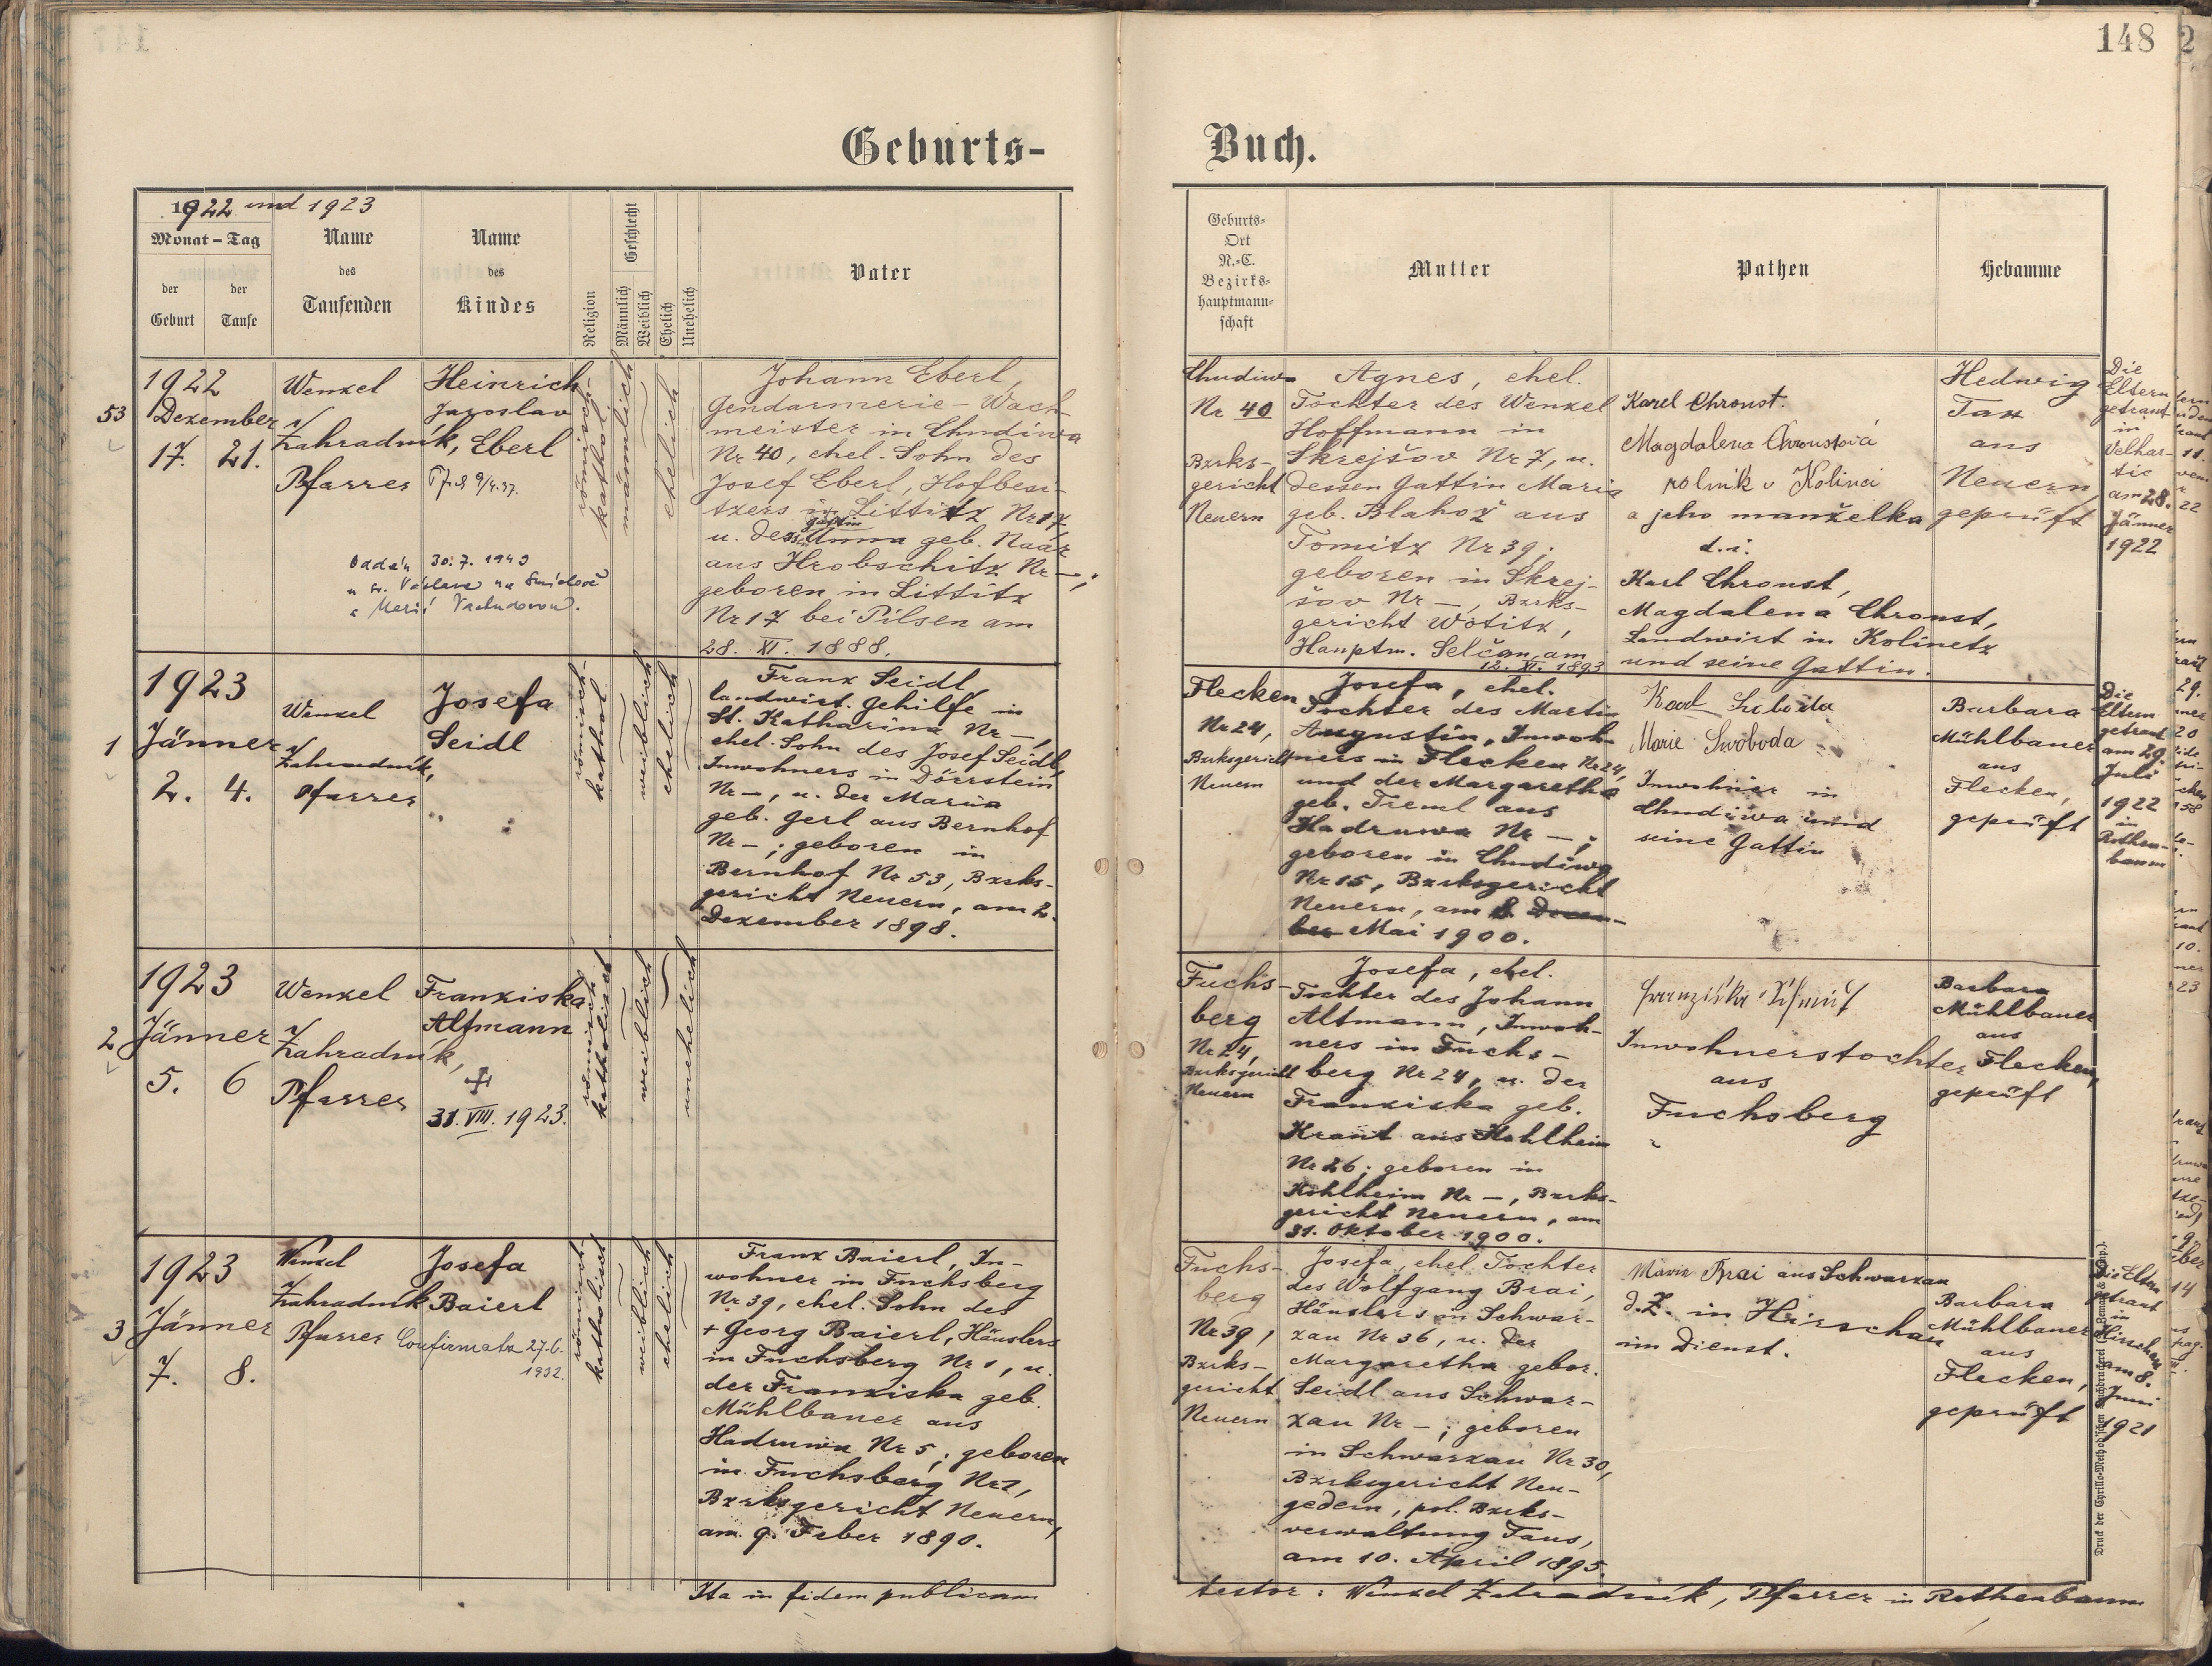 148
Geburts-
Buch.
1922 und 1923
Monat - Tag
der Geburt
der Taufe
Name des Taufenden
Name des Kindes
Religion
Geschlecht
Männlich
Weiblich
Ehelich
Unehelich
Vater
Geburts-
Ort
N.-C.
Bezirks-
hauptmann-
schaft
Mutter
Pathen
Hebamme
53
1922
Dezember
17. 21.
Wenzel
Zahradník,
Pfarrer
Heinrich
Jaroslav
Eberl
römisch-
kathol.
männlich
ehelich
Oddán 30.7.1949
u sv. Václava na Smíchově
s Marií
Johann Eberl,
Gendarmerie-Wach-
meister in Chudiwa
Nr 40, ehel. Sohn des
Josef Eberl, Hofbesi-
tzers in Littitz Nr 17,
u. dessen Gattin Anna geb. Naar
aus Hrobschitz Nr —;
geboren in Littitz
Nr 17 bei Pilsen am
28. XI. 1888.
Chudiwa
Nr 40
Bzrks-
gericht
Neuern
Agnes, ehel.
Tochter des Wenzel
Hoffmann in
Skrejšov Nr 7, u.
dessen Gattin Maria
geb. Blahož aus
Tomitz Nr 39;
geboren in Skrej-
šov Nr —, Bzrks-
gericht Wotitz,
Hauptm. Selčan, am
12. XI. 1893
Karel Chroust.
Magdalena Chroustová
rolník v Kolinci
a jeho manželka
d. i.
Karl Chroust,
Magdalena Chroust,
Landwirt in Kolinetz
und seine Gattin.
Hedwig
Tax
aus
Neuern,
geprüft
Die
Eltern
getraut
in
Velhar-
tic
am 28.
Jänner
1922
1
1923
Jänner
2. 4.
Wenzel
Zahradník,
Pfarrer
Josefa
Seidl
römisch-
kathol.
weiblich
ehelich
Franz Seidl,
landwirt. Gehilfe in
St. Katharina Nr —,
ehel. Sohn des Josef Seidl,
Inwohners in Dörrstein
Nr —, u. der Maria
geb. Gerl aus Bernhof
Nr —; geboren in
Bernhof Nr 53, Bzrks-
gericht Neuern, am 2.
Dezember 1898.
Flecken
Nr 24,
Bzrksgericht
Neuern
Josefa, ehel.
Tochter des Martin
Augustin, Inwoh-
ners in Flecken Nr 24,
und der Margaretha
geb. Treml aus
Hadruwa Nr —;
geboren in Chudiwa
Nr 15, Bzrksgericht
Neuern, am 8.
Mai 1900.
Marie Swoboda
Inwohner in
Chudiwa und
seine Gattin
Barbara
Mühlbauer
aus
Flecken,
geprüft
Die
Eltern
getraut
am 29.
Juli
1922
in
Rothen-
baum
2
1923
Jänner
5. 6
Wenzel
Zahradník,
Pfarrer
Franziska
Altmann
31. VIII. 1923.
römisch
katholisch
weiblich
unehelich
Fuchs-
berg
Nr 24,
Bzrksgericht
Neuern
Josefa, ehel.
Tochter des Johann
Altmann, Inwoh-
ners in Fuchs-
berg Nr 24, u. der
Franziska geb.
Kraut aus Kohlheim
Nr 26; geboren in
Kohlheim Nr —, Bzrks-
gericht Neuern, am
31. Oktober 1900.
Franziska
Inwohnerstochter
aus
Fuchsberg
Barbara
Mühlbauer
aus
Flecken,
geprüft
3
1923
Jänner
7. 8.
Wenzel
Zahradník
Pfarrer
Josefa
Baierl
Confirmata 27.6.
1932.
römisch-
katholisch
weiblich
ehelich
Franz Baierl, In-
wohner in Fuchsberg
Nr 39, ehel. Sohn des
+ Georg Baierl, Häuslers
in Fuchsberg Nr 1, u.
der Franziska geb.
Mühlbauer aus
Hadruwa Nr 5; geboren
in Fuchsberg Nr 1,
Bzrksgericht Neuern,
am 9. Feber 1890.
Fuchs-
berg
Nr 39,
Bzrks-
gericht
Neuern
Josefa, ehel. Tochter
des Wolfgang Brai,
Häuslers in Schwar-
zau Nr 36, u. der
Margaretha gebor.
Seidl aus Schwar-
zau Nr —; geboren
in Schwarzau Nr 30,
Bzrksgericht Neu-
gedein, pol. Bzrks-
verwaltung Taus,
am 10. April 1895.
Maria Brai aus Schwarzau
d. Z. in Hirschau
im Dienst.
Barbara
Mühlbauer
aus
Flecken,
geprüft
Die Eltern
getraut
in
Hirschau
am 8.
Juni
1921
Ita in fidem publicam
testor: Wenzel Zahradník, Pfarrer in Rothenbaum